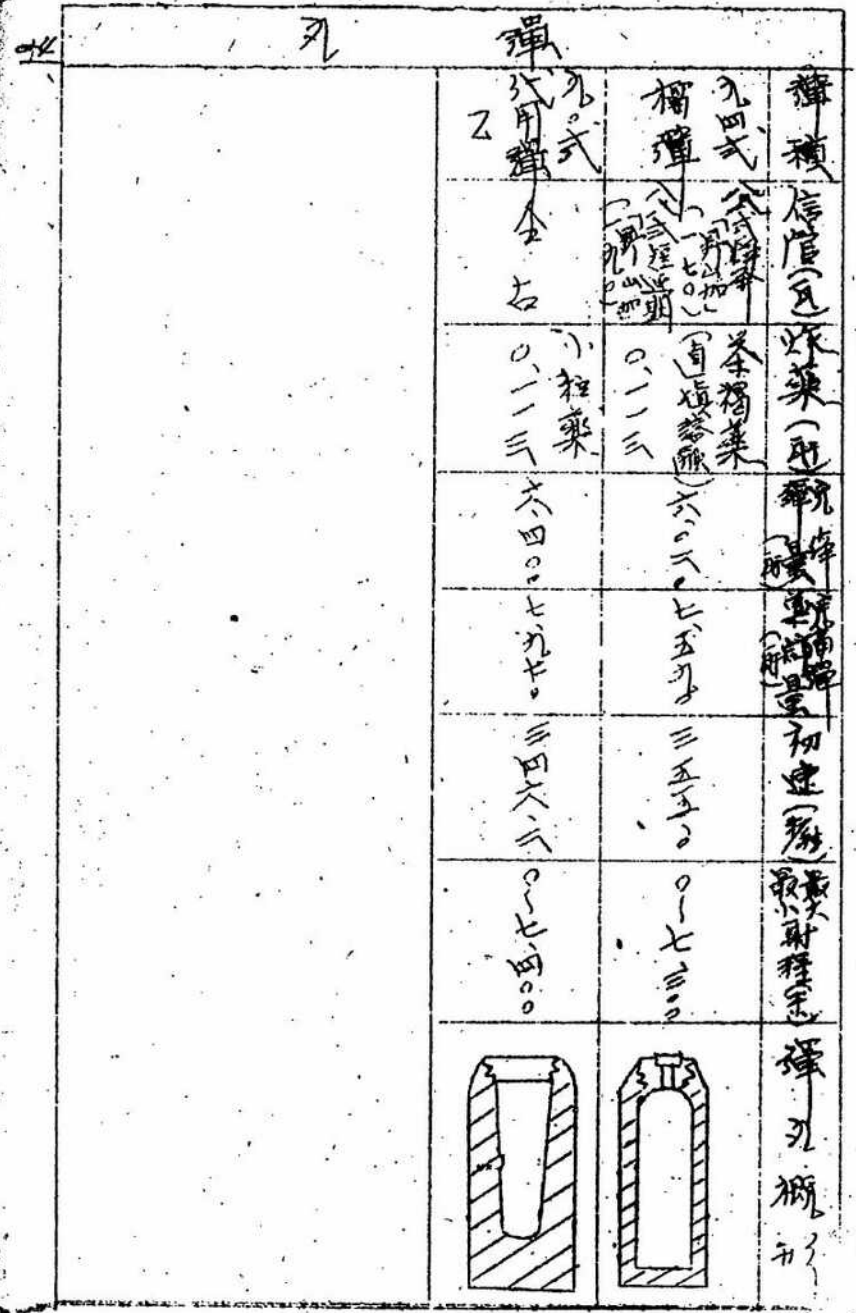 彈丸
彈種
信管(瓦)
炸薬(瓩)
完備
彈量(瓩)
完備彈
薬筒量(瓩)
初速(米/秒)
最大
最小射程(米)
彈丸概形
九四式
榴彈
八八式
「野山加」
(一七〇)
八八式短延期
「野山加」
茶褐薬
(直填溶融)
〇、一一三
六、〇二〇
七、五九〇
三五五〇
〇〜七、三〇〇
九〇式
代用彈
乙
仝右
小粒薬
〇、一一三
六、四〇〇
七、九七〇
三四六、二
〇〜七、四〇〇